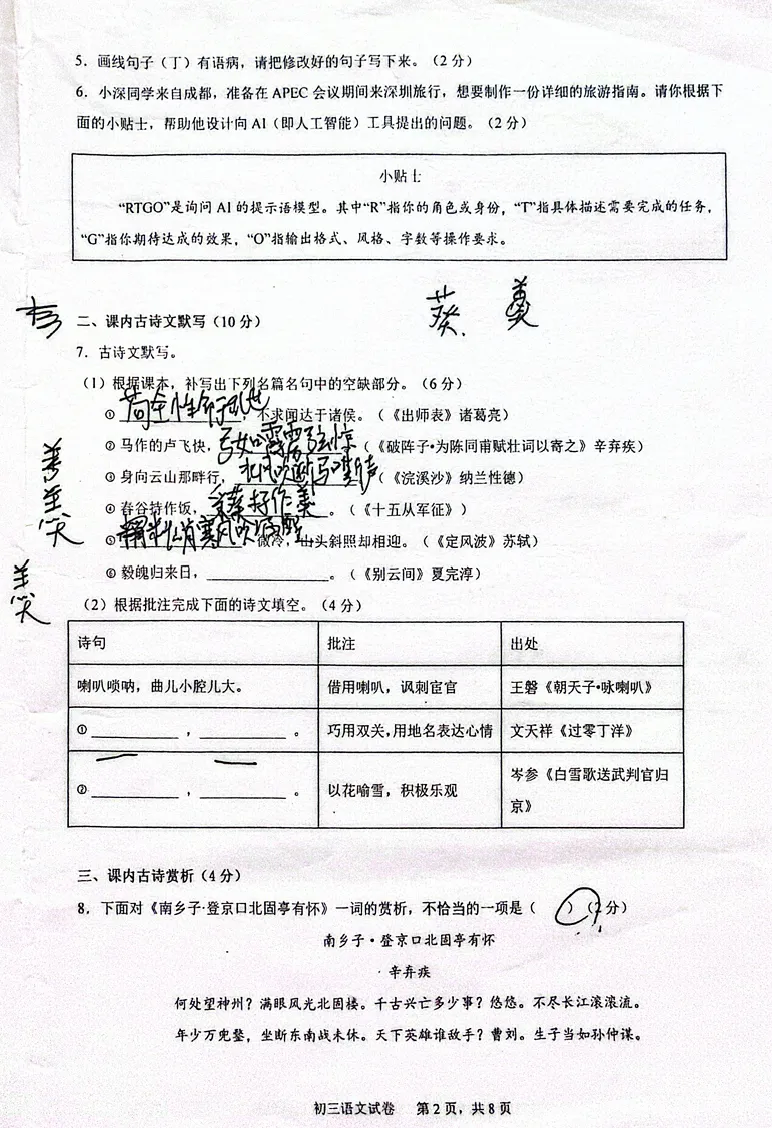 5. 画线句子（丁）有语病，请把修改好的句子写下来。（2 分）
6. 小深同学来自成都，准备在 APEC 会议期间来深圳旅行，想要制作一份详细的旅游指南。请你根据下
面的小贴士，帮助他设计向 AI（即人工智能）工具提出的问题。（2 分）
小贴士
“RTGO”是询问 AI 的提示语模型。其中“R”指你的角色或身份，“T”指具体描述需要完成的任务，
“G”指你期待达成的效果，“O”指输出格式、风格、字数等操作要求。
葵 羹
二、课内古诗文默写（10 分）
7. 古诗文默写。
（1）根据课本，补写出下列名篇名句中的空缺部分。（6 分）
① 苟全性命于乱世，不求闻达于诸侯。（《出师表》诸葛亮）
② 马作的卢飞快，弓如霹雳弦惊（《破阵子·为陈同甫赋壮词以寄之》辛弃疾）
③ 身向云山那畔行，北风吹断马嘶声（《浣溪沙》纳兰性德）
④ 舂谷持作饭，采葵持作羹。（《十五从军征》）
⑤ 料峭春风吹酒醒，微冷，山头斜照却相迎。（《定风波》苏轼）
⑥ 毅魄归来日，________。（《别云间》夏完淳）
（2）根据批注完成下面的诗文填空。（4 分）
诗句 批注 出处
喇叭唢呐，曲儿小腔儿大。 借用喇叭，讽刺宦官 王磐《朝天子•咏喇叭》
① ________，________。 巧用双关，用地名表达心情 文天祥《过零丁洋》
② ________，________。 以花喻雪，积极乐观 岑参《白雪歌送武判官归
京》
三、课内古诗赏析（4 分）
8. 下面对《南乡子·登京口北固亭有怀》一词的赏析，不恰当的一项是（ ）（2 分）
南乡子·登京口北固亭有怀
辛弃疾
何处望神州？满眼风光北固楼。千古兴亡多少事？悠悠。不尽长江滚滚流。
年少万兜鍪，坐断东南战未休。天下英雄谁敌手？曹刘。生子当如孙仲谋。
初三语文试卷 第 2 页，共 8 页